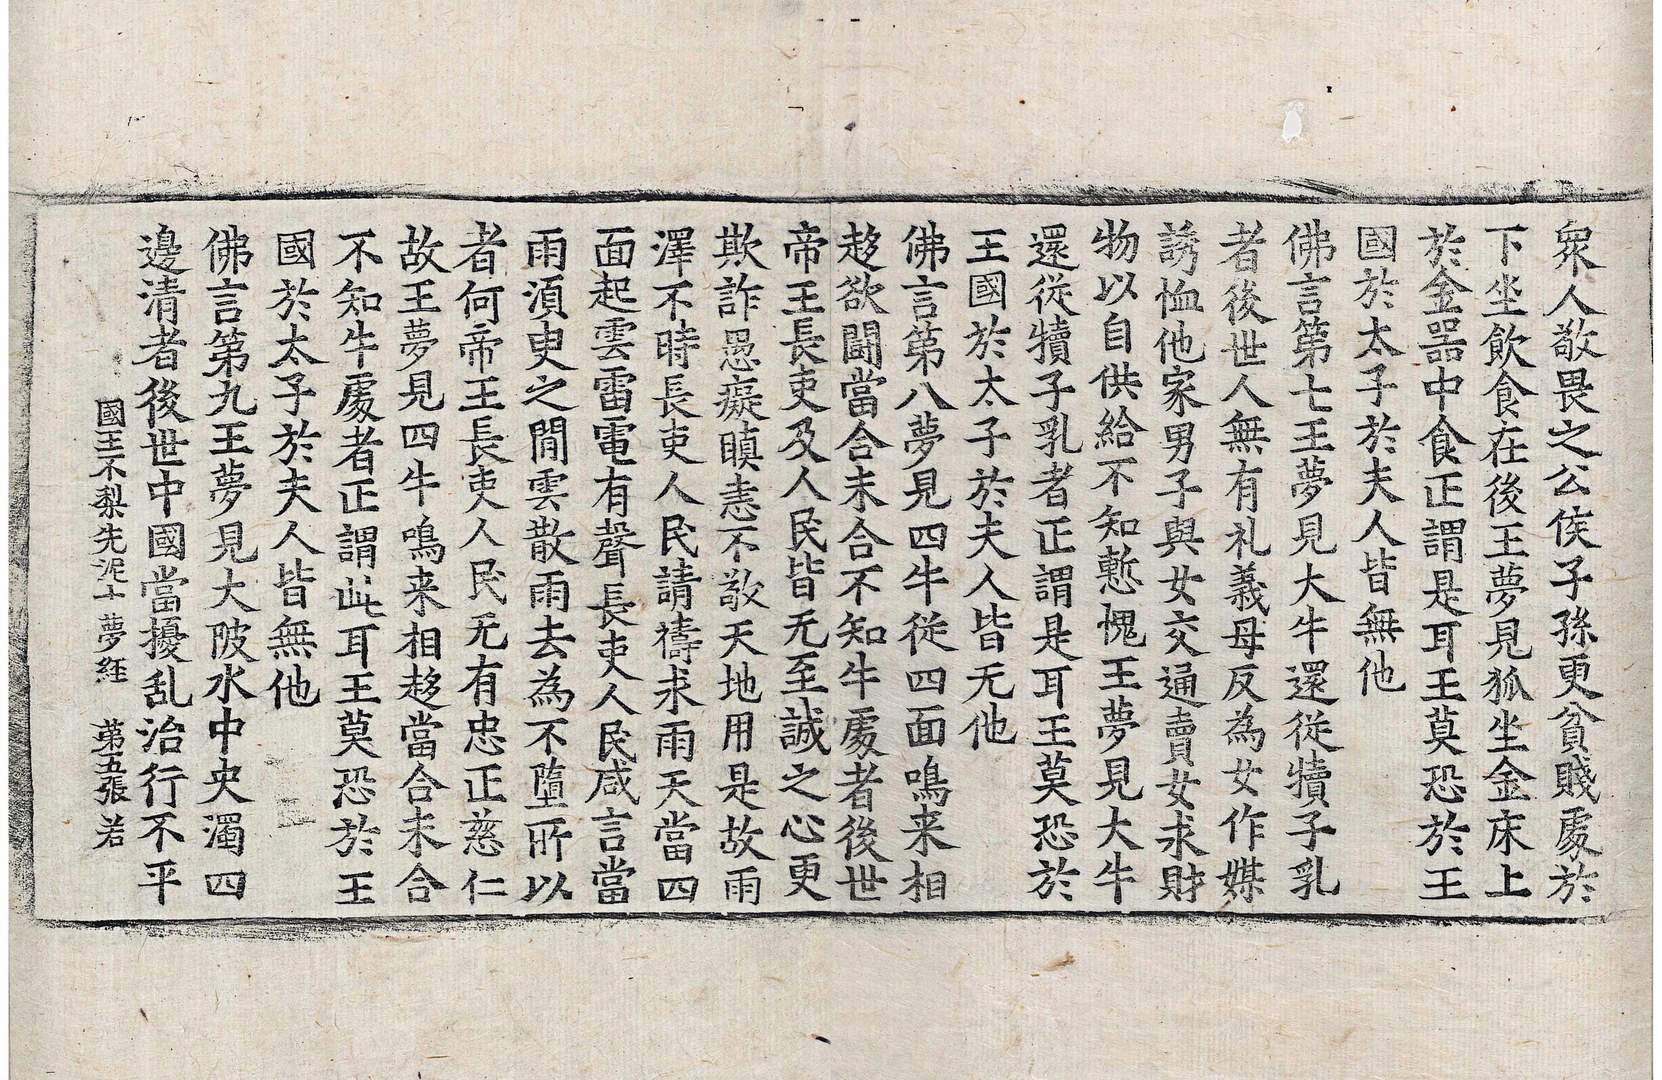 衆人敬畏之公侯子孫更貧賤處於
下坐飲食在後王夢見狐坐金床上
於金器中食正謂是耳王莫恐於王
國於太子於夫人皆無他
佛言第七王夢見大牛還従犢子乳
者後世人無有礼義母反為女作媒
誘恤他家男子與女交通賣女求財
物以自供給不知慙愧王夢見大牛
還従犢子乳者正謂是耳王莫恐於
王國於太子於夫人皆无他
佛言第八夢見四牛従四面鳴来相
趍欲鬪當合未合不知牛處者後世
帝王長吏及人民皆无至誠之心更
欺詐愚癡瞋恚不敬天地用是故雨
澤不時長吏人民請禱求雨天當四
面起雲雷電有聲長吏人民咸言當
雨湏臾之閒雲散雨去為不墮所以
者何帝王長吏人民无有忠正慈仁
故王夢見四牛鳴来相趍當合未合
不知牛處者正謂此耳王莫恐於王
國於太子於夫人皆無他
佛言第九王夢見大陂水中央濁四
邊清者後世中國當擾乱治行不平
國王不梨先泥十夢経 第五張 若